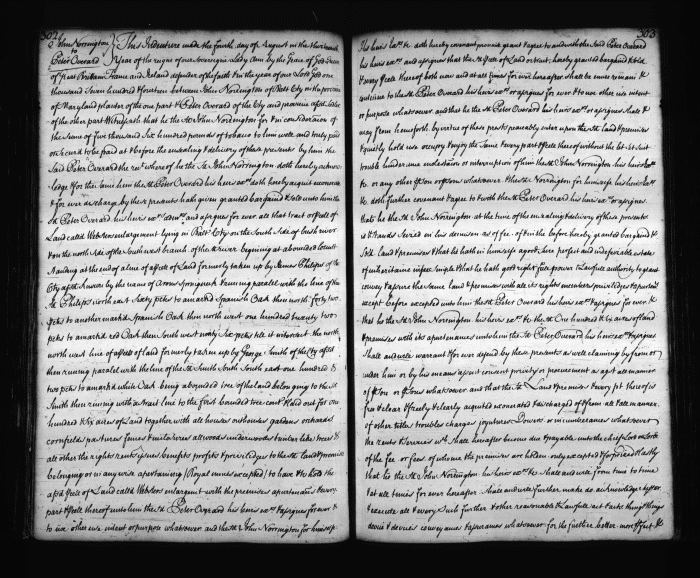 302
John Norrington
to
Peter Overard
This Indenture made the fourth day of August in the thirteenth
Year of the reign of our Sovereign Lady Ann by the Grace of God Queen
of Great Brittain France and Ireland defender of the faith & in the year of our Lord God one
thousand Seven hundred & fourteen between John Norrington of Balt City in the province
of Maryland planter of the one part & Peter Overard of the City and province afsd
of the other part Witnesseth that he the sd John Norrington for & in consideration of
the Sume of five thousand Six hundred pounds of tobacco to him well and truly paid
or Secured to be paid at & before the ensealing & delivery of these presents by him the
Said Peter Overard the rect whereof he the Sd John Norrington doth hereby acknow
ledge & for the same him the Sd Peter Overard his heirs exrs doth hereby acquit exonerate
& for ever discharge by these presents hath given granted bargained & sold unto him the
Sd Peter Overard his heirs exrs admrs and assignes for ever all that tract or psell of
Land called Websters enlargement lying in Balt City on the South Side of bush river
& on the north Side of the Southwest branch of the sd river begining at abounded locust
Standing at the end of a line of a psell of Land formerly taken up by James Philips of the
City afsd known by the name of & runing parallel with the line of the
sd Philips north east Sixty ps to a markd Spanish Oak then north forty two
ps to another markd Spanish Oak then north west one hundred & twenty two
ps to a markd red Oak then South west ninty Six ps till it intersect the north
north west line of a psell of land formerly taken up by George Smith of the City afsd
then runing parallel with the line of the sd Smith South South east one hundred &
two ps to a markd white Oak being a bounded tree of the land belonging to the sd
Smith then runing with a strait line to the first bounded tree cont & laid out for one
hundred & six acres of Land together with all houses outhouses gardens orchards
cornfields pastures fences & inclosures all woods underwoods timber & other trees &
all other the rights rents issues benefits profits & priviledges to the Sd land & premises
belonging or in any wise apertaining (Royal mines excepted) to have & to hold the
afsd psell of Land called Websters enlargemt with the premises apurtenances & every
part & psell thereof unto him the sd Peter Overard his heirs exrs & assignes for ever &
to use other use intent or purpose whatsoever and the sd John Norrington for himself
303
his heirs Exrs &c doth hereby covenant promise grant & agree to and with the Said Peter Overard
his heirs exrs and assignes that the sd psell of Land or tract hereby granted bargaind & Sold
& every psell thereof both now and at all times for ever hereafter Shall be remain &
continue to the sd Peter Overard his heirs exrs or assignes for ever & to no other use intent
or purpose whatsoever and that he the Sd Peter Overard his heirs exrs or assignes Shall &
may from henceforth by virtue of these presents peaceably enter upon the sd land & premises
& quietly hold use occupy & enjoy the Same & every part & psell thereof without the let Suit
trouble hinderance molestation or interuption of him the sd John Norrington his heirs exrs
&c or any other pson or psons whatsoever & the sd Norrington for himself & his heirs Exrs
&c doth further covenant & agree to & with the sd Peter Overard his heirs exrs or assignes
that he the Sd John Norrington at the time of the ensealing & delivery of these presents
is & Stands Seized in his demesne as of fee of & in the before hereby granted bargaind &
sold land & premises & that he hath in himself a good pure perfect and indefeasable estate
of inheritance in fee Simple & that he hath good right full power & lawfull authority to grant
convey & assure the Same land & premises with all its rights members priviledges & apurtent
except before excepted unto him the Sd Peter Overard his heirs exrs & assignes for ever &
that he the Sd John Norrington his heirs exrs &c the Sd One hundred & six acres of land
& premises with its apurtenances unto him the Sd Peter Overard his heirs exrs & assignes
Shall and will warrant & for ever defend by these presents as well claiming by from or
under him or by his means assent consent privity or procurement as agst all manner
of pson or psons whatsoever and that the Sd Land & premises & every pt thereof is
free & clear & freely & clearly acquited exonerated & discharged of & from all & all manner
of other titles troubles charges joyntures Dowers or incumberances whatsoever
the rents & services wch shall hereafter become due & payable unto the chief Lord or Lords
of the fee or fees of whome the premises are holden only excepted & foreprized & lastly
that he the Sd John Norrington his heirs exrs &c Shall and will from time to time
& at all times for ever hereafter Shall and will further make do acknowledge
& execute all & every Such further & other reasonable & Lawfull act & acts thing & things
devise & devices conveyance & asurances whatsoever for the further better more & &c